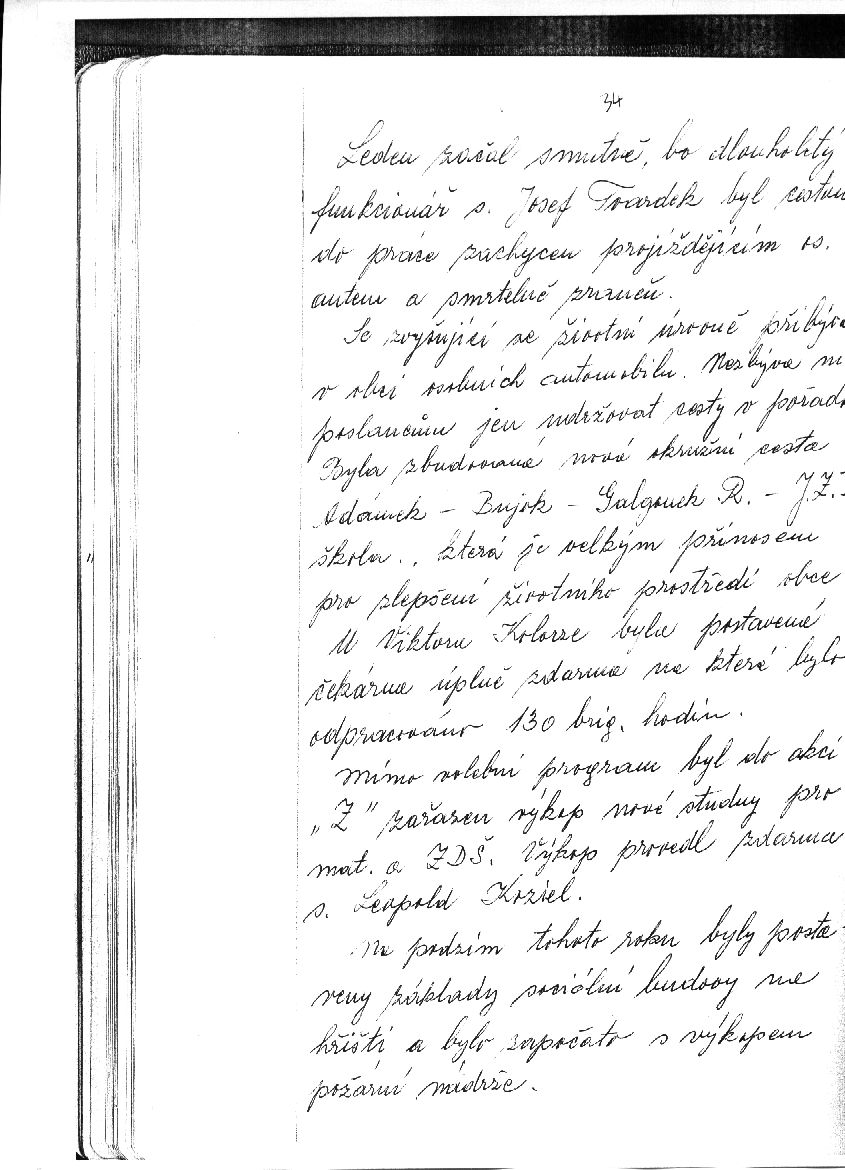 34
Leden začal smutně, bo dlouholetý
funkcionář s. Josef Tvardek byl cestou
do práce zachycen projíždějícím os.
autem a smrtelně zraněn.
Se zvyšující se životní úrovně přibývá
v obci osobních automobilu. Nezbývá
poslancům jen udržovat cesty v pořád
Byla zbudovaná nová okružní cesta
Adámek – Bujok – Galgonek R. – J.Z.
škola., která je velkým přínosem
pro zlepšení životního prostředí obce
U Viktora Kolorze byla postavená
čekárna úplně zdarma na která bylo
odpracováno 130 brig. hodin.
Mimo volební program byl do akcí
„Z" zařazen výkop nové studny pro
mat. a ZDŠ. Výkop provedl zdarma
s. Leopold Koziel.
Na podzim tohoto roku byly posta-
veny základy sociální budovy na
hřišti a bylo započato s výkopem
požární nádrže.